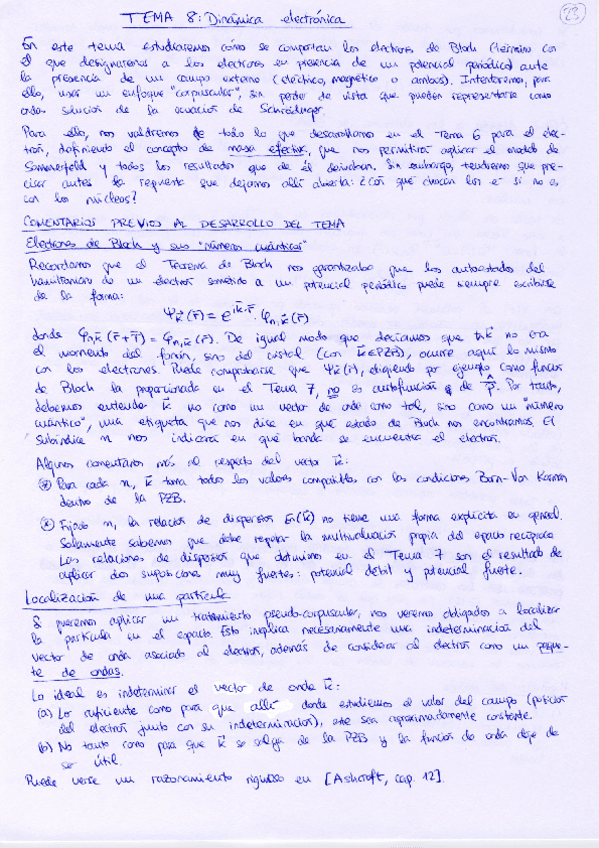 23
TEMA 8: Dinámica electrónica
En este tema estudiaremos cómo se comportan los electrones de Bloch (término con
el que designaremos a los electrones en presencia de un potencial periódico) ante
la presencia de un campo externo (eléctrico, magnético o ambos). Intentaremos, para
ello, usar un enfoque "corpuscular", sin perder de vista que pueden representarse como
onda solución de la ecuación de Schrödinger.
Para ello, nos valdremos de todo lo que desarrollamos en el Tema 6 para el elec-
trón, definiendo el concepto de masa efectiva, que nos permitirá aplicar el modelo de
Sommerfeld y todos los resultados que de él derivaban. Sin embargo, tendremos que pre-
cisar antes la repuesta que dejamos allí abierta: ¿Con qué chocan los e⁻ si no es
con los núcleos?
COMENTARIOS PREVIOS AL DESARROLLO DEL TEMA
Electrones de Bloch y sus "números cuánticos"
Recordamos que el Teorema de Bloch nos garantizaba que los autoestados del
hamiltoniano de un electrón sometido a un potencial periódico puede siempre escribirse
de la forma:
Ψk⃗(r⃗) = e^{ik⃗·r⃗} · φn,k⃗(r⃗)
donde φn,k⃗(r⃗+T⃗) = φn,k⃗(r⃗). De igual modo que decíamos que ħk⃗ no era
el momento del fonón, sino del cristal (con k⃗∈PZB), ocurre aquí lo mismo
con los electrones. Puede comprobarse que Ψk⃗(r⃗), eligiendo por ejemplo como función
de Bloch la proporcionada en el Tema 7, no es autofunción de p⃗. Por tanto,
debemos entender k⃗ no como un vector de onda como tal, sino como un "número
cuántico", una etiqueta que nos dice en qué estado de Bloch nos encontramos. El
subíndice n nos indicará en qué banda se encuentra el electrón.
Algunos comentarios más al respecto del vector k⃗:
(*) Para cada n, k⃗ toma todos los valores compatibles con las condiciones Born-Von Karman
dentro de la PZB.
(*) Fijado n, la relación de dispersión En(k⃗) no tiene una forma explícita en general.
Solamente sabemos que debe repetir la multivaluación propia del espacio recíproco
Las relaciones de dispersión que obtuvimos en el Tema 7 son el resultado de
aplicar dos suposiciones muy fuertes: potencial débil y potencial fuerte.
Localización de una partícula
Si queremos aplicar un tratamiento pseudo-corpuscular, nos veremos obligados a localizar
la partícula en el espacio. Esto implica necesariamente una indeterminación del
vector de onda asociado al electrón, además de considerar al electrón como un paque-
te de ondas.
Lo ideal es indeterminar el vector de onda k⃗:
(a) Lo suficiente como para que allí donde estudiemos el valor del campo (posición
del electrón junto con su indeterminación), este sea aproximadamente constante.
(b) No tanto como para que k⃗ se salga de la PZB y la función de onda deje de
ser útil.
Puede verse un razonamiento riguroso en [Ashcroft, cap. 12].